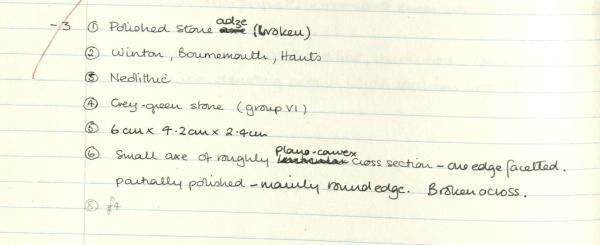 -3 ① Polished stone adze (broken)
② Winton, Bournemouth, Hants
③ Neolithic
④ Grey-green stone (group VI)
⑤ 6cm x 4.2cm x 2.4cm
⑥ Small axe of roughly plano-convex cross section - one edge facetted.
partially polished - mainly round edge. Broken across.
⑧ £4